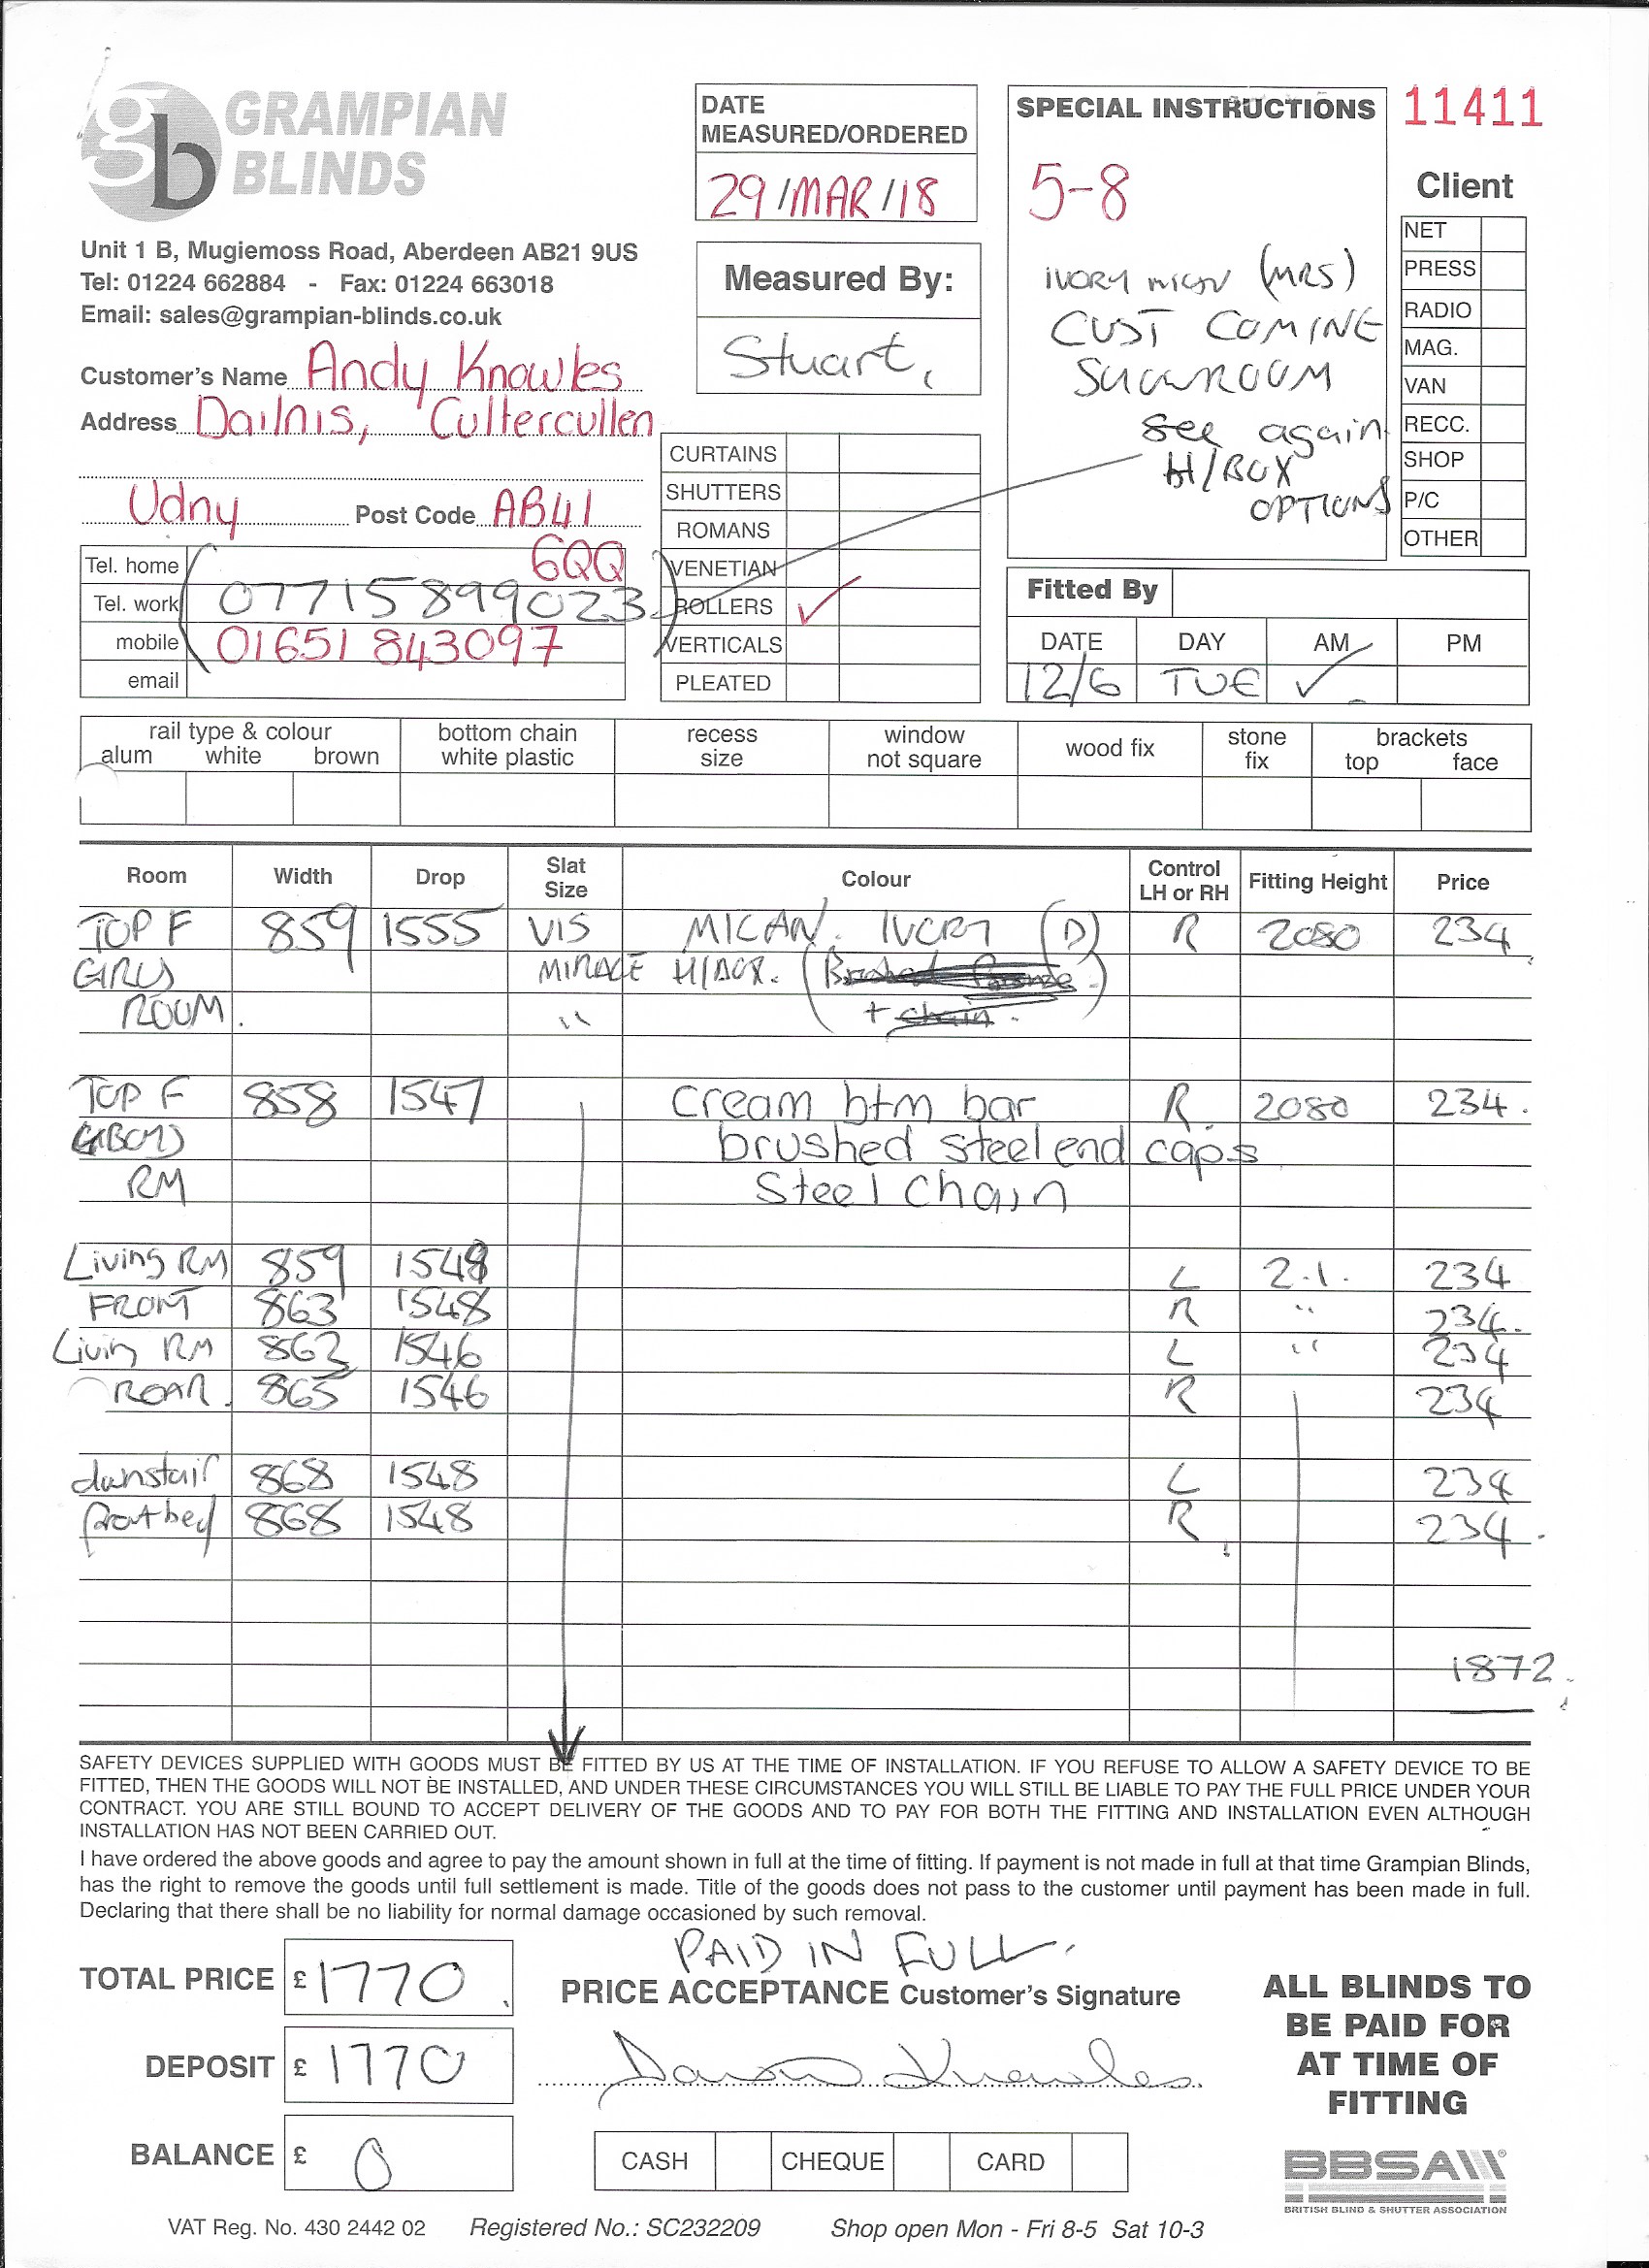 gb GRAMPIAN BLINDS
Unit 1 B, Mugiemoss Road, Aberdeen AB21 9US
Tel: 01224 662884 - Fax: 01224 663018
Email: sales@grampian-blinds.co.uk
Customer's Name Andy Knowles
Address Dailnis, Cultercullen
Udny Post Code AB41
6QQ
Tel. home
Tel. work 07715899023
mobile 01651 843097
email
DATE
MEASURED/ORDERED
29/MAR/18
Measured By:
Stuart,
CURTAINS
SHUTTERS
ROMANS
VENETIAN
ROLLERS ✓
VERTICALS
PLEATED
SPECIAL INSTRUCTIONS
5-8
IVORY (MRS)
CUST COMING
SHOWROOM
see again
H/BOX
OPTIONS
11411
Client
NET
PRESS
RADIO
MAG.
VAN
RECC.
SHOP
P/C
OTHER
Fitted By
DATE DAY AM PM
12/6 TUE ✓
rail type & colour
alum white brown
bottom chain
white plastic
recess
size
window
not square
wood fix
stone
fix
brackets
top face
Room Width Drop Slat Size Colour Control LH or RH Fitting Height Price
TOP F 859 1555 VIS MICAN. IVORY (D) R 2080 234
GIRLS MIRAGE H/BOX. (Brushed
ROOM. " + chain.
TOP F 858 1547 cream btm bar R 2080 234.
(BOYS) brushed steel end caps
RM Steel Chain
Living RM 859 1548 L 2.1. 234
FRONT 863 1548 R " 234.
Living RM 862 1546 L " 234
REAR. 865 1546 R 234
downstair 868 1548 L 234
front bed 868 1548 R 234.
1872.
SAFETY DEVICES SUPPLIED WITH GOODS MUST BE FITTED BY US AT THE TIME OF INSTALLATION. IF YOU REFUSE TO ALLOW A SAFETY DEVICE TO BE
FITTED, THEN THE GOODS WILL NOT BE INSTALLED, AND UNDER THESE CIRCUMSTANCES YOU WILL STILL BE LIABLE TO PAY THE FULL PRICE UNDER YOUR
CONTRACT. YOU ARE STILL BOUND TO ACCEPT DELIVERY OF THE GOODS AND TO PAY FOR BOTH THE FITTING AND INSTALLATION EVEN ALTHOUGH
INSTALLATION HAS NOT BEEN CARRIED OUT.
I have ordered the above goods and agree to pay the amount shown in full at the time of fitting. If payment is not made in full at that time Grampian Blinds,
has the right to remove the goods until full settlement is made. Title of the goods does not pass to the customer until payment has been made in full.
Declaring that there shall be no liability for normal damage occasioned by such removal.
PAID IN FULL.
TOTAL PRICE £ 1770.
PRICE ACCEPTANCE Customer's Signature
DEPOSIT £ 1770
Knowles
BALANCE £ 0
CASH CHEQUE CARD
ALL BLINDS TO
BE PAID FOR
AT TIME OF
FITTING
BBSA
BRITISH BLIND & SHUTTER ASSOCIATION
VAT Reg. No. 430 2442 02 Registered No.: SC232209 Shop open Mon - Fri 8-5 Sat 10-3